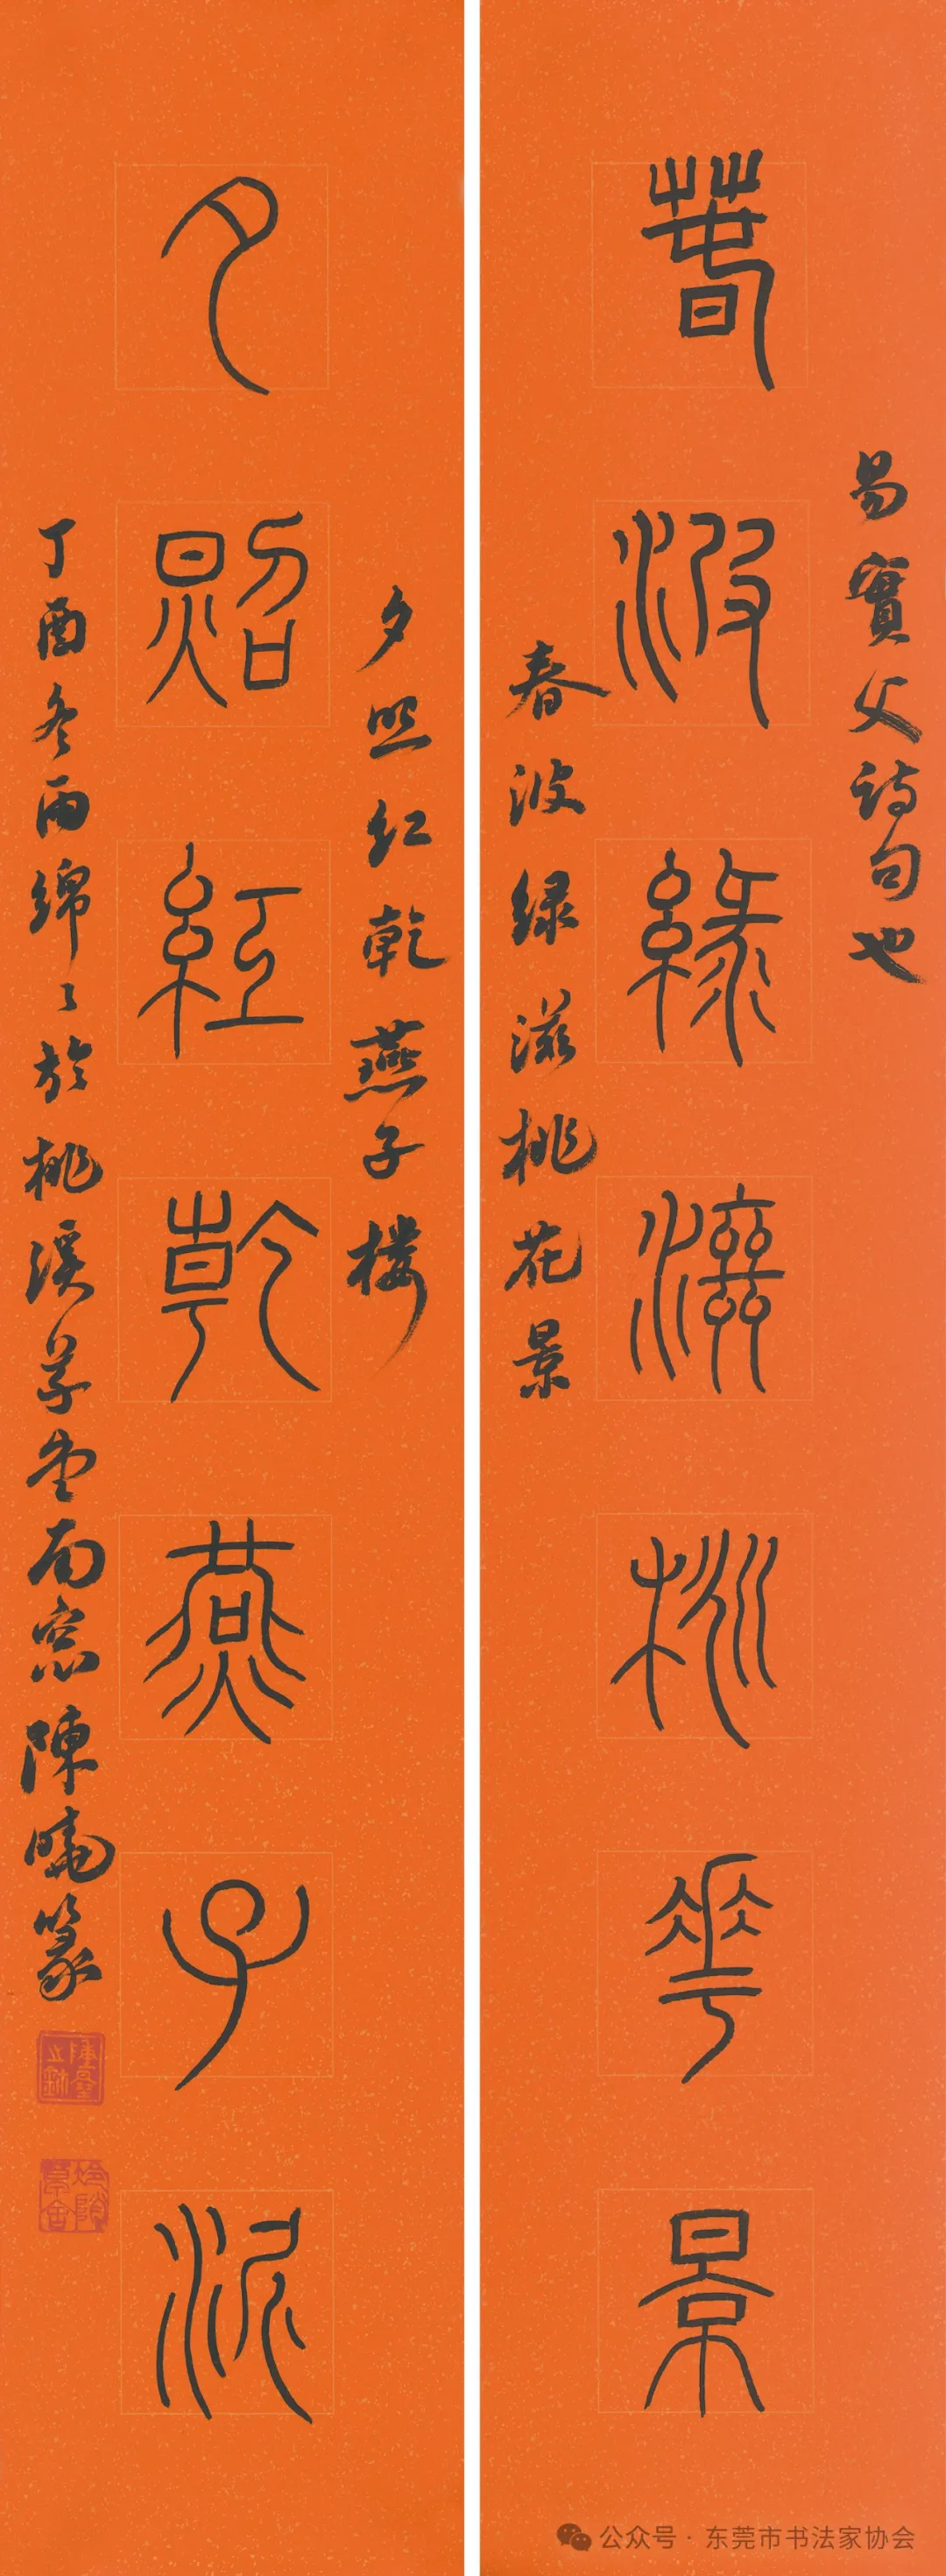 易實父詩句也
春波綠滋桃華景
春波绿滋桃花景
夕照红乾燕子楼
夕照紅乾燕子泥
丁酉冬雨綿々於桃溪草堂南窓陳曉篆
公众号 · 东莞市书法家协会